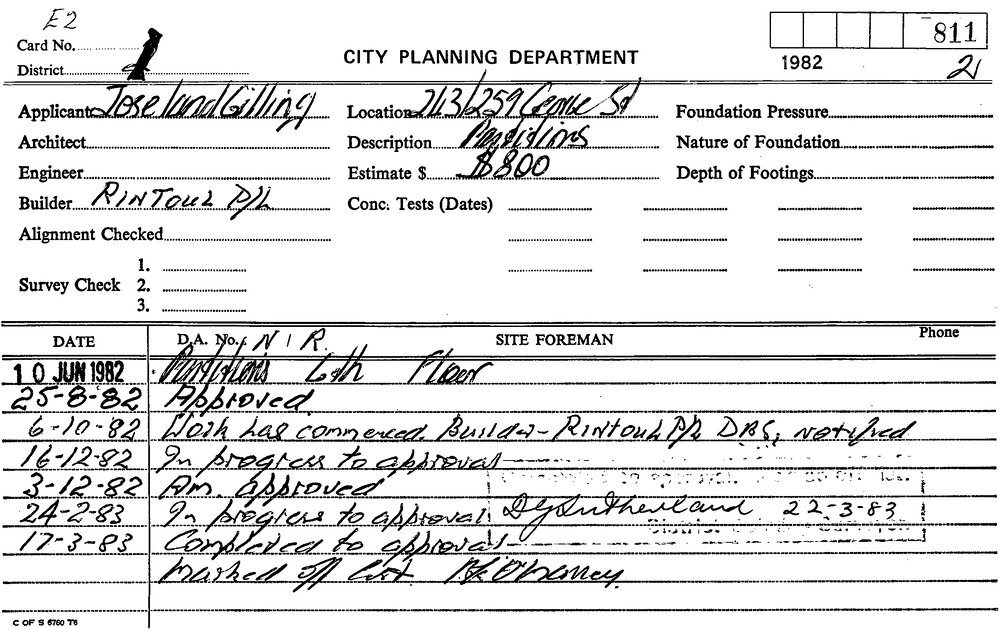 E2
Card No.
District
CITY PLANNING DEPARTMENT
811
1982
2
Applicant Joseland Gilling
Location 243/259 George St
Foundation Pressure
Architect
Description Partitions
Nature of Foundation
Engineer
Estimate $ $800
Depth of Footings
Builder RINTOUL P/L
Conc. Tests (Dates)
Alignment Checked
Survey Check
1.
2.
3.
DATE D.A. No. N I R. SITE FOREMAN Phone
10 JUN 1982 Partitions 6th Floor
25-8-82 Approved
6-10-82 Work has commenced. Builder - RINTOUL P/L DBS, notified
16-12-82 In progress to approval
3-12-82 Am. approved
24-2-83 In progress to approval DGSutherland 22-3-83
17-3-83 Completed to approval
Marked off
C OF S 6760 T6